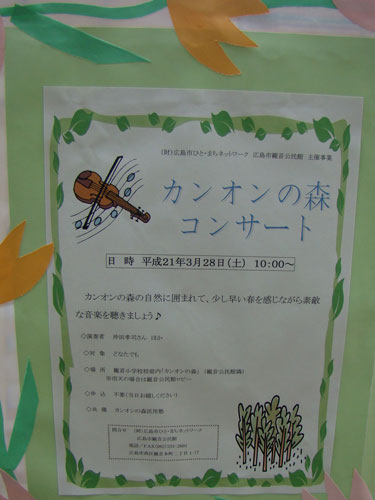 (財)広島市ひと・まちネットワーク 広島市観音公民館 主催事業
カンオンの森
コンサート
日 時 平成21年3月28日(土) 10:00~
カンオンの森の自然に囲まれて、少し早い春を感じながら素敵
な音楽を聴きましょう♪
◇演奏者
さん ほか
◇対 象 どなたでも
◇場 所 観音小学校校庭内「カンオンの森」(観音公民館隣)
※雨天の場合は観音公民館ロビー
◇申 込 不要(当日お越しください)
◇共 催 カンオンの森
問合せ (財)広島市ひと・まちネットワーク
広島市観音公民館
電話/FAX(082)
広島市西区観音本町